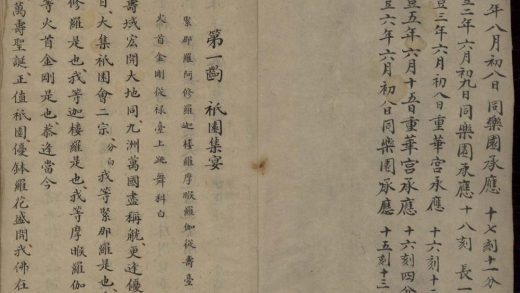 年八月初八日同樂園承應 十七刻十一分
二年六月初九日同樂園承應 十八刻 長一
三年六月初八日重華宮承應 十六刻十
五年六月十五日重華宮承應 十六刻四分
六年六月初八日同樂園承應 十五刻十三
第一齣 祇園集宴
緊那羅阿修羅迦樓羅摩睺羅伽從壽臺
火首金剛從祿臺上跳舞科白
壽域宏開大地同九洲萬國盡稱觥更逢優
日大集祇園會二宗 分白 我等緊那羅是也
修羅是也我等迦樓羅是也我等摩睺羅伽
等火首金剛是也恭逢當今
萬壽聖誕正值祇園優鉢羅花盛開我佛在